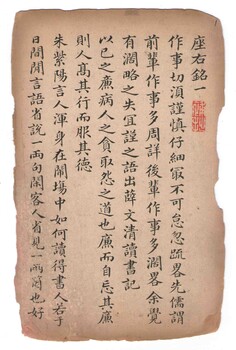 座右銘一
作事切須謹慎仔細最不可怠忽疏畧先儒謂
前輩作事多周詳後輩作事多濶畧余覺
有濶略之失宜謹之語出薛文清讀書記
以己之廉病人之貪取怨之道也廉而自忘其廉
則人高其行而服其德
朱紫陽言人渾身在鬧場中如何讀得書人若于
日間閒言語省說一兩句閑客人省見一兩箇也好